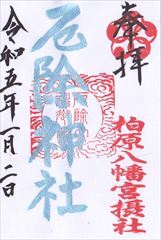 奉拝
柏原八幡宮摂社
厄除神社
令和五年一月二日